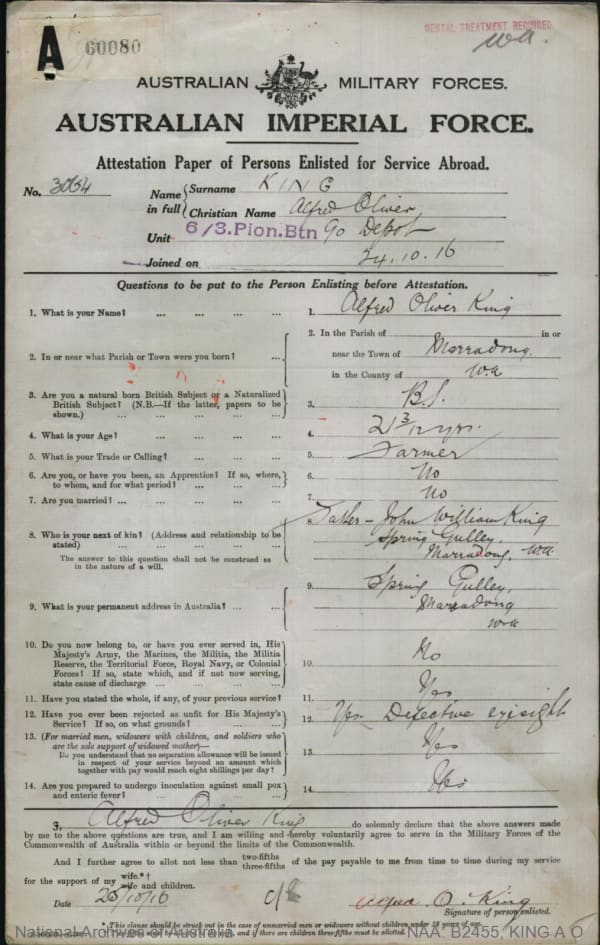 A 60080
DENTAL TREATMENT REQUIRED
WA.
AUSTRALIAN MILITARY FORCES.
AUSTRALIAN IMPERIAL FORCE.
Attestation Paper of Persons Enlisted for Service Abroad.
No. 3064 Name in full { Surname KING
Christian Name Alfred Oliver
Unit 6/3.Pion.Btn 90 Depot
Joined on 24.10.16
Questions to be put to the Person Enlisting before Attestation.
1. What is your Name? ... ... ... ... 1. Alfred Oliver King
2. In or near what Parish or Town were you born? ... 2. In the Parish of in or
near the Town of Marradong.
in the County of W.a
3. Are you a natural born British Subject or a Naturalized
British Subject? (N.B.—If the latter, papers to be
shown.) ... ... ... ... ... 3. B.S.
4. What is your Age? ... ... ... ... 4. 21 3/12 yrs.
5. What is your Trade or Calling? ... ... ... 5. Farmer
6. Are you, or have you been, an Apprentice? If so, where,
to whom, and for what period? ... ... ... 6. No
7. Are you married? ... ... ... ... ... 7. No
8. Who is your next of kin? (Address and relationship to be
stated) ... ... ... ... ...
The answer to this question shall not be construed as
in the nature of a will.
Father - John William King
Spring Gulley,
Marradong, W.a.
9. What is your permanent address in Australia? ... ... 9. Spring Gulley,
Marradong
W.a
10. Do you now belong to, or have you ever served in, His
Majesty's Army, the Marines, the Militia, the Militia
Reserve, the Territorial Force, Royal Navy, or Colonial
Forces? If so, state which, and if not now serving,
state cause of discharge ... ... ... ... 10. No
11. Have you stated the whole, if any, of your previous service? 11. Yes
12. Have you ever been rejected as unfit for His Majesty's
Service? If so, on what grounds? ... ... ... 12. Yes. Defective eyesight
13. (For married men, widowers with children, and soldiers who
are the sole support of widowed mother)—
Do you understand that no separation allowance will be issued
in respect of your service beyond an amount which
together with pay would reach eight shillings per day? 13. Yes
14. Are you prepared to undergo inoculation against small pox
and enteric fever? ... ... ... ... 14. Yes
I, Alfred Oliver King do solemnly declare that the above answers made
by me to the above questions are true, and I am willing and hereby voluntarily agree to serve in the Military Forces of the
Commonwealth of Australia within or beyond the limits of the Commonwealth.
And I further agree to allot not less than two-fifths
three-fifths of the pay payable to me from time to time during my service
for the support of my wife.*†
wife and children.
Date 25/10/16 Alfred. O. King
Signature of person enlisted.
* This clause should be struck out in the case of unmarried men or widowers without children under 18 years of age.
National Archives of Australia NAA: B2455, KING A O